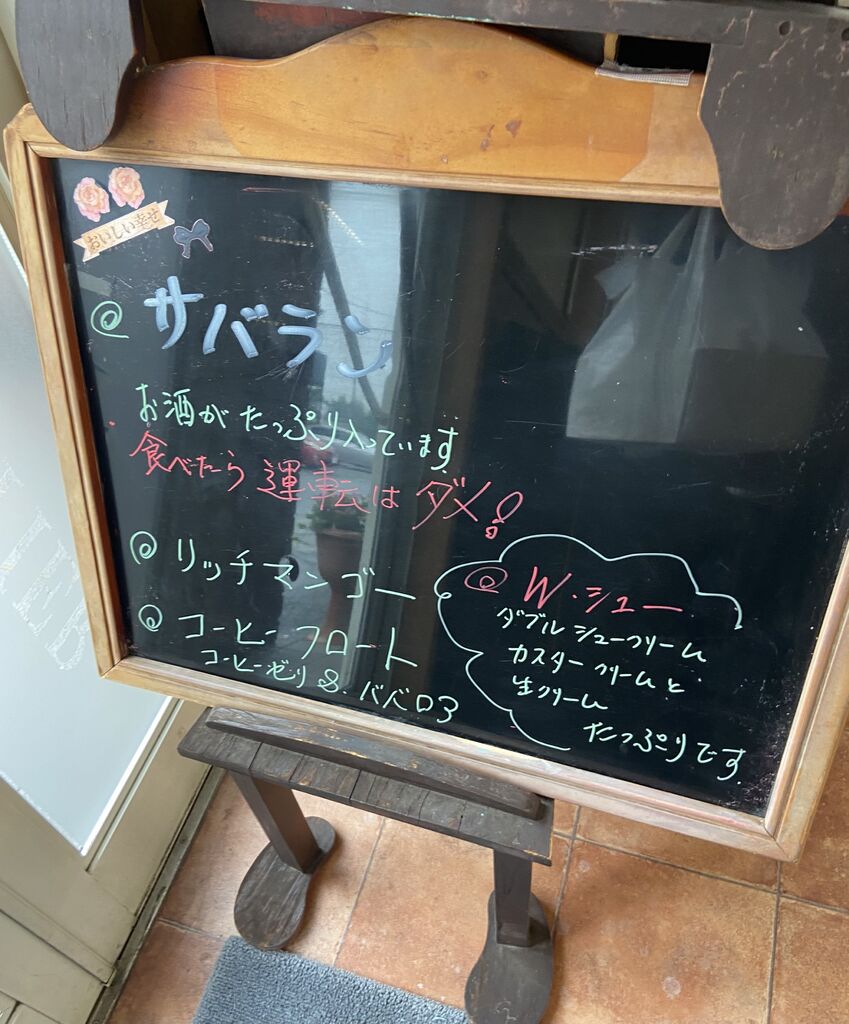 おいしい幸せ
◎ サバラン
お酒がたっぷり入っています
食べたら運転はダメ!
◎ リッチマンゴー
◎ コーヒーフロート
コーヒーゼリー & ババロア
◎ W・シュー
ダブルシュークリーム
カスタークリームと
生クリーム
たっぷりです